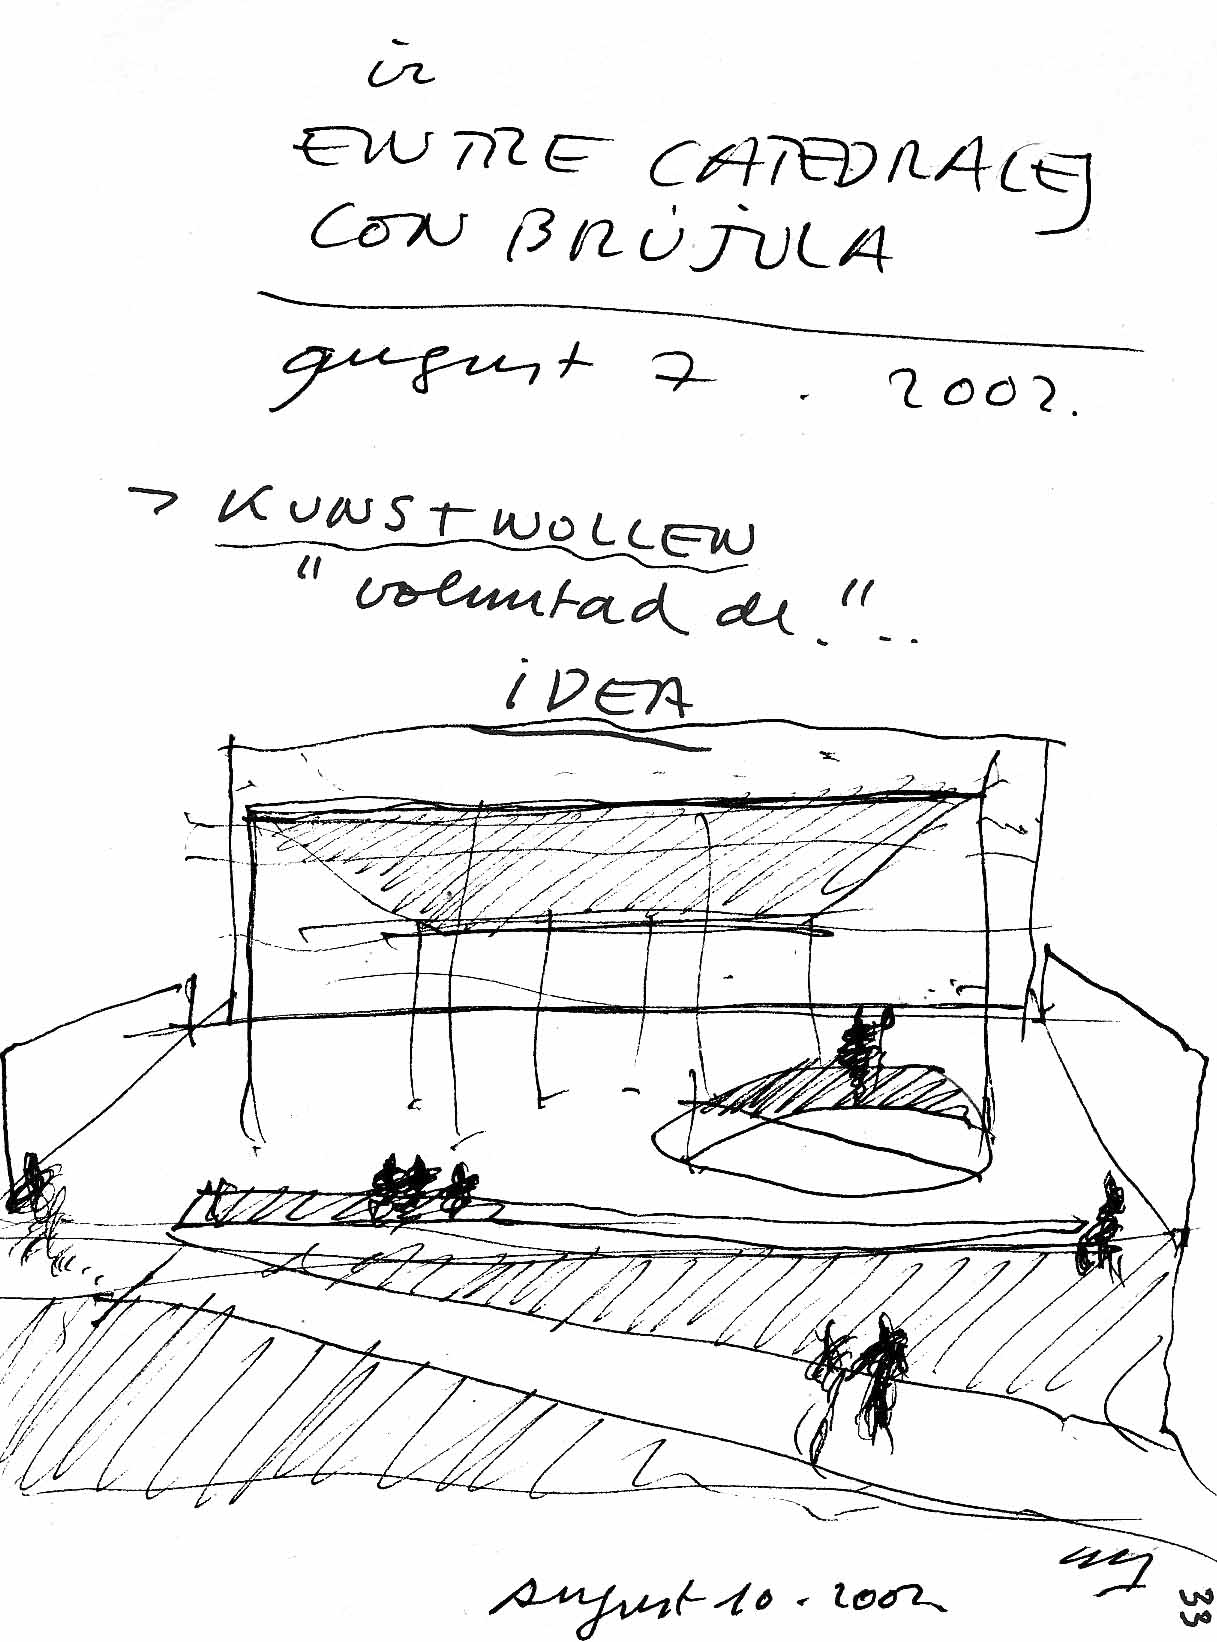 ir
ENTRE CATEDRALES
CON BRÚJULA
august 7 . 2002.
> KUNSTWOLLEN
"voluntad de."..
iDEA
august 10 . 2002
33